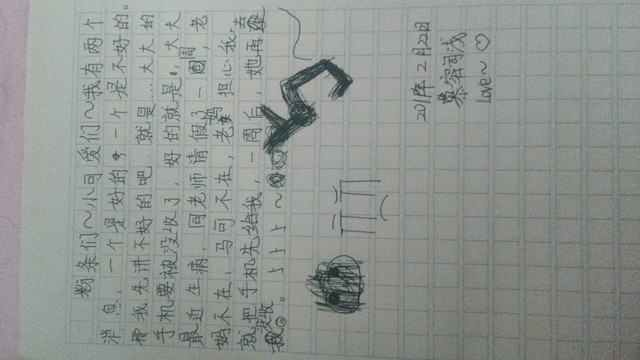 粉条们~小可爱们~我有两个
消息,一个是好的,一个是不好的。
我先讲不好的吧…就是…大大的
手机要被没收了,好的就是,大大
最近生病,同老师请假了一周,老
妈不在,马可不在,老妈担心我,
就把手机先给我,一周后,她再
没收。
2月22日
慕容司浅
Love~♡